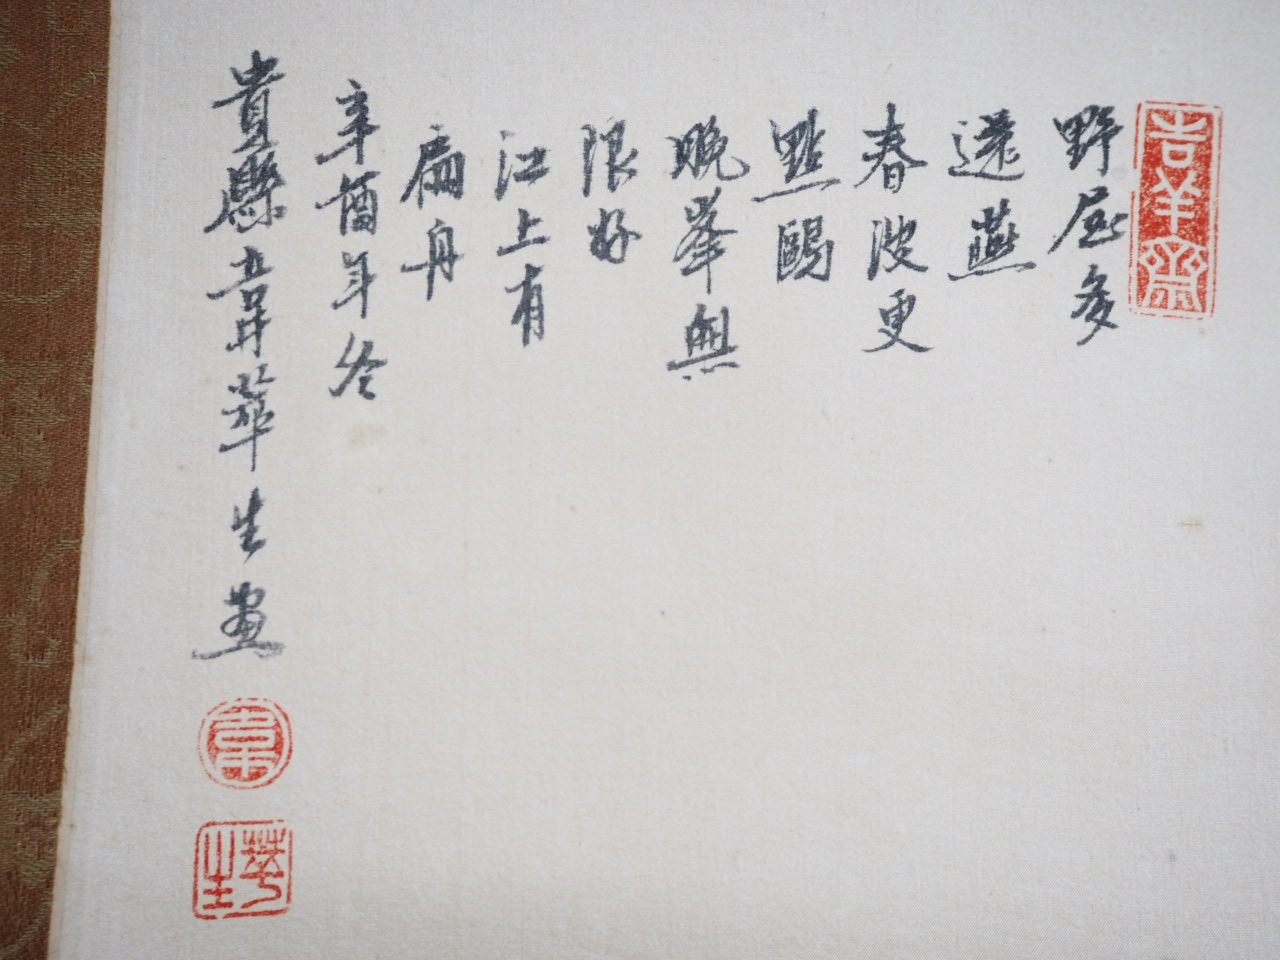 吉羊齋
野屋多
遠燕
春波更
點鷗
晚峯無
限好
江上有
扁舟
辛酉年冬
貴縣韋華生畫
韋
華生